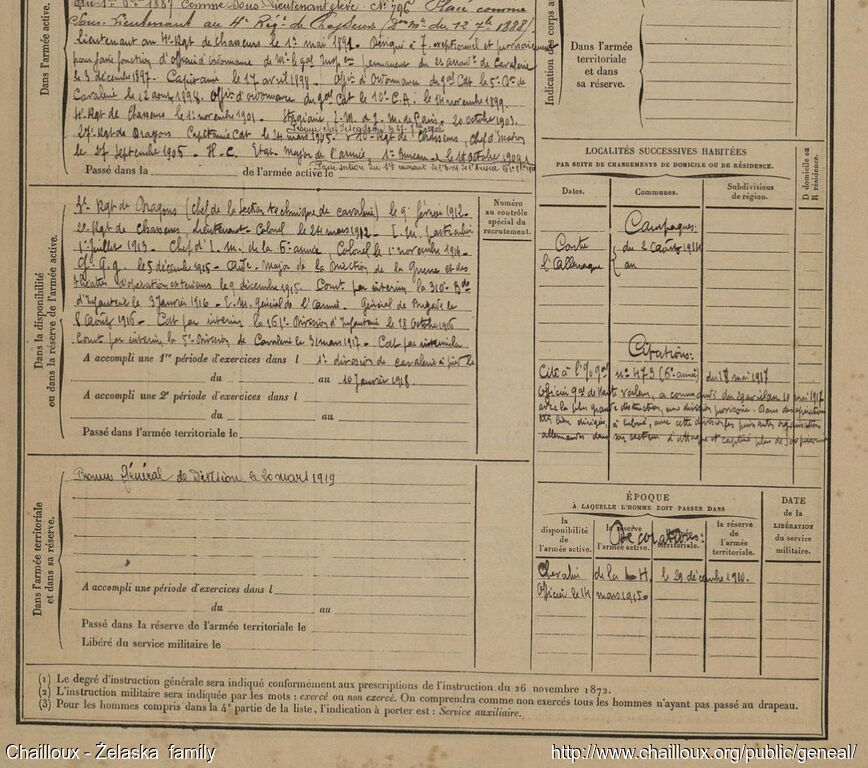 comme Sous Lieutenant élève. N° 796 Placé comme
Sous Lieutenant au 4e Régt de Chasseurs
Lieutenant au 4e Rgt de Chasseurs le 1er mai 1891. Désigné à
pour faire fonction d'officier d'ordonnance de Mr le gal Insp permanent du arrondt de Cavalerie
le 3 décembre 1897. Capitaine le 17 avril 1898. Offr d'ordonnance du gal Cdt la 5e Bde de
Cavalerie le 12 août 1898. Offr d'ordonnance du gal Cdt le 10e C.A. le 14 novembre 1899.
4e Rgt de Chasseurs le 1er novembre 1901. Stagiaire. E.M. du G. M. de Paris. 20 octobre 1903.
27e Rgt de Dragons Capitaine Cdt le 24 mars 1905. Rgt de Chasseurs, Chef d'
le 27 Septembre 1905. H.C. Etat Major de l'armée, 1er Bureau le octobre 1909
Passé dans la de l'armée active le
Dans l'armée active.
Indication des corps
Dans l'armée
territoriale
et dans
sa réserve.
LOCALITÉS SUCCESSIVES HABITÉES
PAR SUITE DE CHANGEMENTS DE DOMICILE OU DE RÉSIDENCE.
D domicile ou
R résidence.
Dates.
Communes.
Subdivisions
de région.
Campagnes:
Contre
l'Allemagne
du 2 août 1914
au
Citations:
Cité à l' n° 473 (6e armée) du 18 mai 1917
Officier gal de haute valeur, a commandé du 29 avril au 10 mai 1917
avec la plus grande distinction, une division provisoire. Dans des opérations
très bien dirigées, a enlevé, avec cette division les puissantes organisations
allemandes dans son secteur d'attaque et capturé plus de prisonniers
Dans la disponibilité
ou dans la réserve de l'armée active.
Numéro
au contrôle
spécial du
recrutement.
Rgt de Dragons (Chef de la Section technique de cavalerie) le 9 février 1912.
Rgt de chasseurs Lieutenant Colonel le 24 mars 1912.
1er juillet 1913. Chef d'E. M. de la 6e armée, Colonel le 1er novembre 1914.
G. Q. G. le 5 décembre 1915. Aide Major de la Direction de la guerre et des
théâtres d'opération extérieurs le 9 décembre 1915. Comt par intérim la 310e Bde
d'Infanterie le 3 janvier 1916. E.M. Général de l'armée. Général de Brigade le
8 août 1916. Cdt par intérim la 161e Division d'Infanterie le 18 octobre 1916
Comt par intérim la 5e Division de Cavalerie le 31 mars 1917. Cdt par intérim
A accompli une 1re période d'exercices dans l 1re division de cavalerie à partir le
du au 10 janvier 1918.
A accompli une 2e période d'exercices dans l
du au
Passé dans l'armée territoriale le
Dans l'armée territoriale
et dans sa réserve.
Promu Général de Division le 20 mars 1919
A accompli une période d'exercices dans l
du au
Passé dans la réserve de l'armée territoriale le
Libéré du service militaire le
ÉPOQUE
À LAQUELLE L'HOMME DOIT PASSER DANS
DATE
de la
LIBÉRATION
du service
militaire.
la
disponibilité
de
l'armée active.
la réserve
de
l'armée active.
l'armée
territoriale.
la réserve
de
l'armée
territoriale.
Décorations:
Chevalier de la L H. le 29 décembre 1910.
Officier le 14 mars 1915.
(1) Le degré d'instruction générale sera indiqué conformément aux prescriptions de l'instruction du 26 novembre 1872.
(2) L'instruction militaire sera indiquée par les mots : exercé ou non exercé. On comprendra comme non exercés tous les hommes n'ayant pas passé au drapeau.
(3) Pour les hommes compris dans la 4e partie de la liste, l'indication à porter est : Service auxiliaire.
Chailloux - Żelaska family
http://www.chailloux.org/public/geneal/